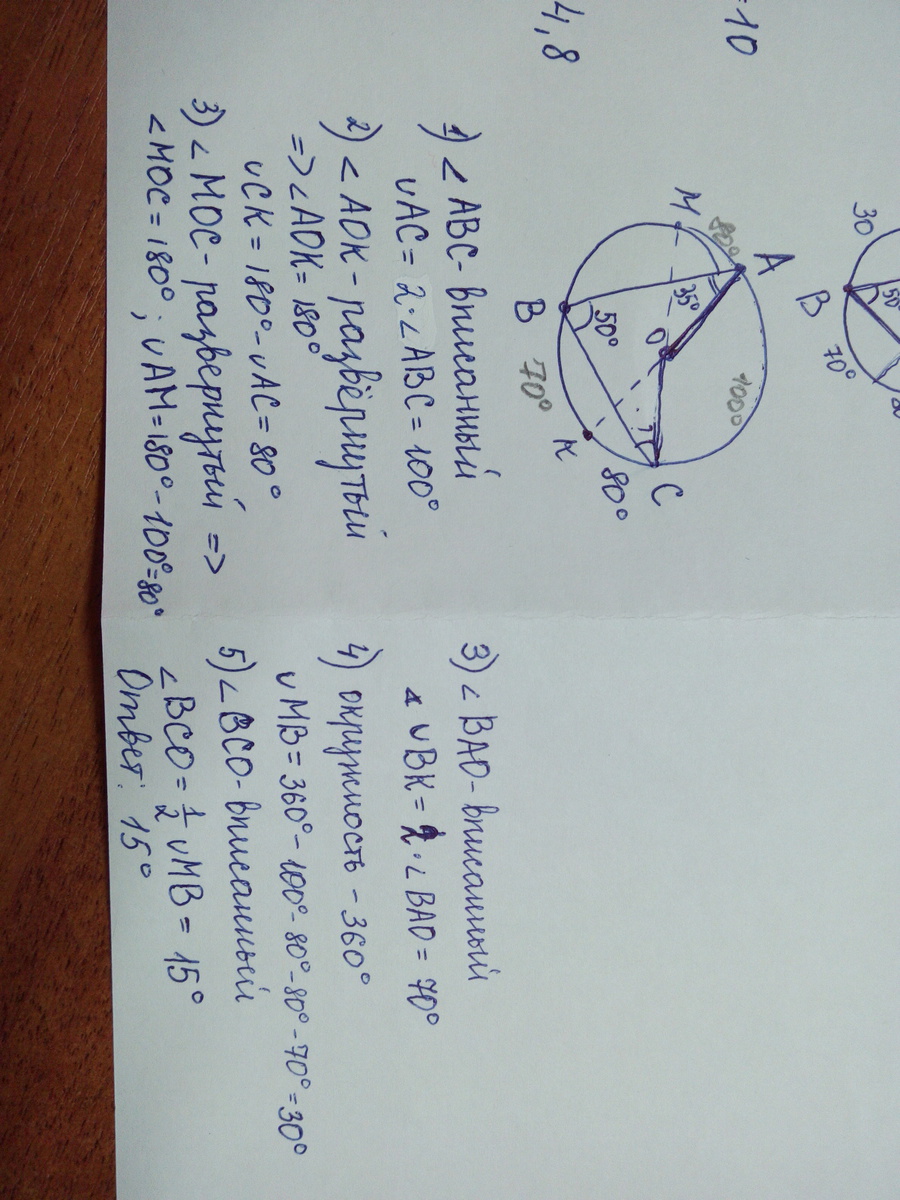 =10
4,8
30
B
50°
70°
A
M
80°
35°
O
100°
B
50°
70°
K
C
80°
1) ∠ABC-вписанный
∪AC = 2·∠ABC = 100°
2) ∠AOK-развёрнутый
=> ∠AOK = 180°
∪CK = 180° - ∪AC = 80°
3) ∠MOC-развернутый =>
∠MOC = 180°; ∪AM = 180° - 100° = 80°
3) ∠BAO-вписанный
∪BK = 2·∠BAO = 70°
4) окружность - 360°
∪MB = 360° - 100° - 80° - 80° - 70° = 30°
5) ∠BCO-вписанный
∠BCO = 1/2 ∪MB = 15°
Ответ: 15°